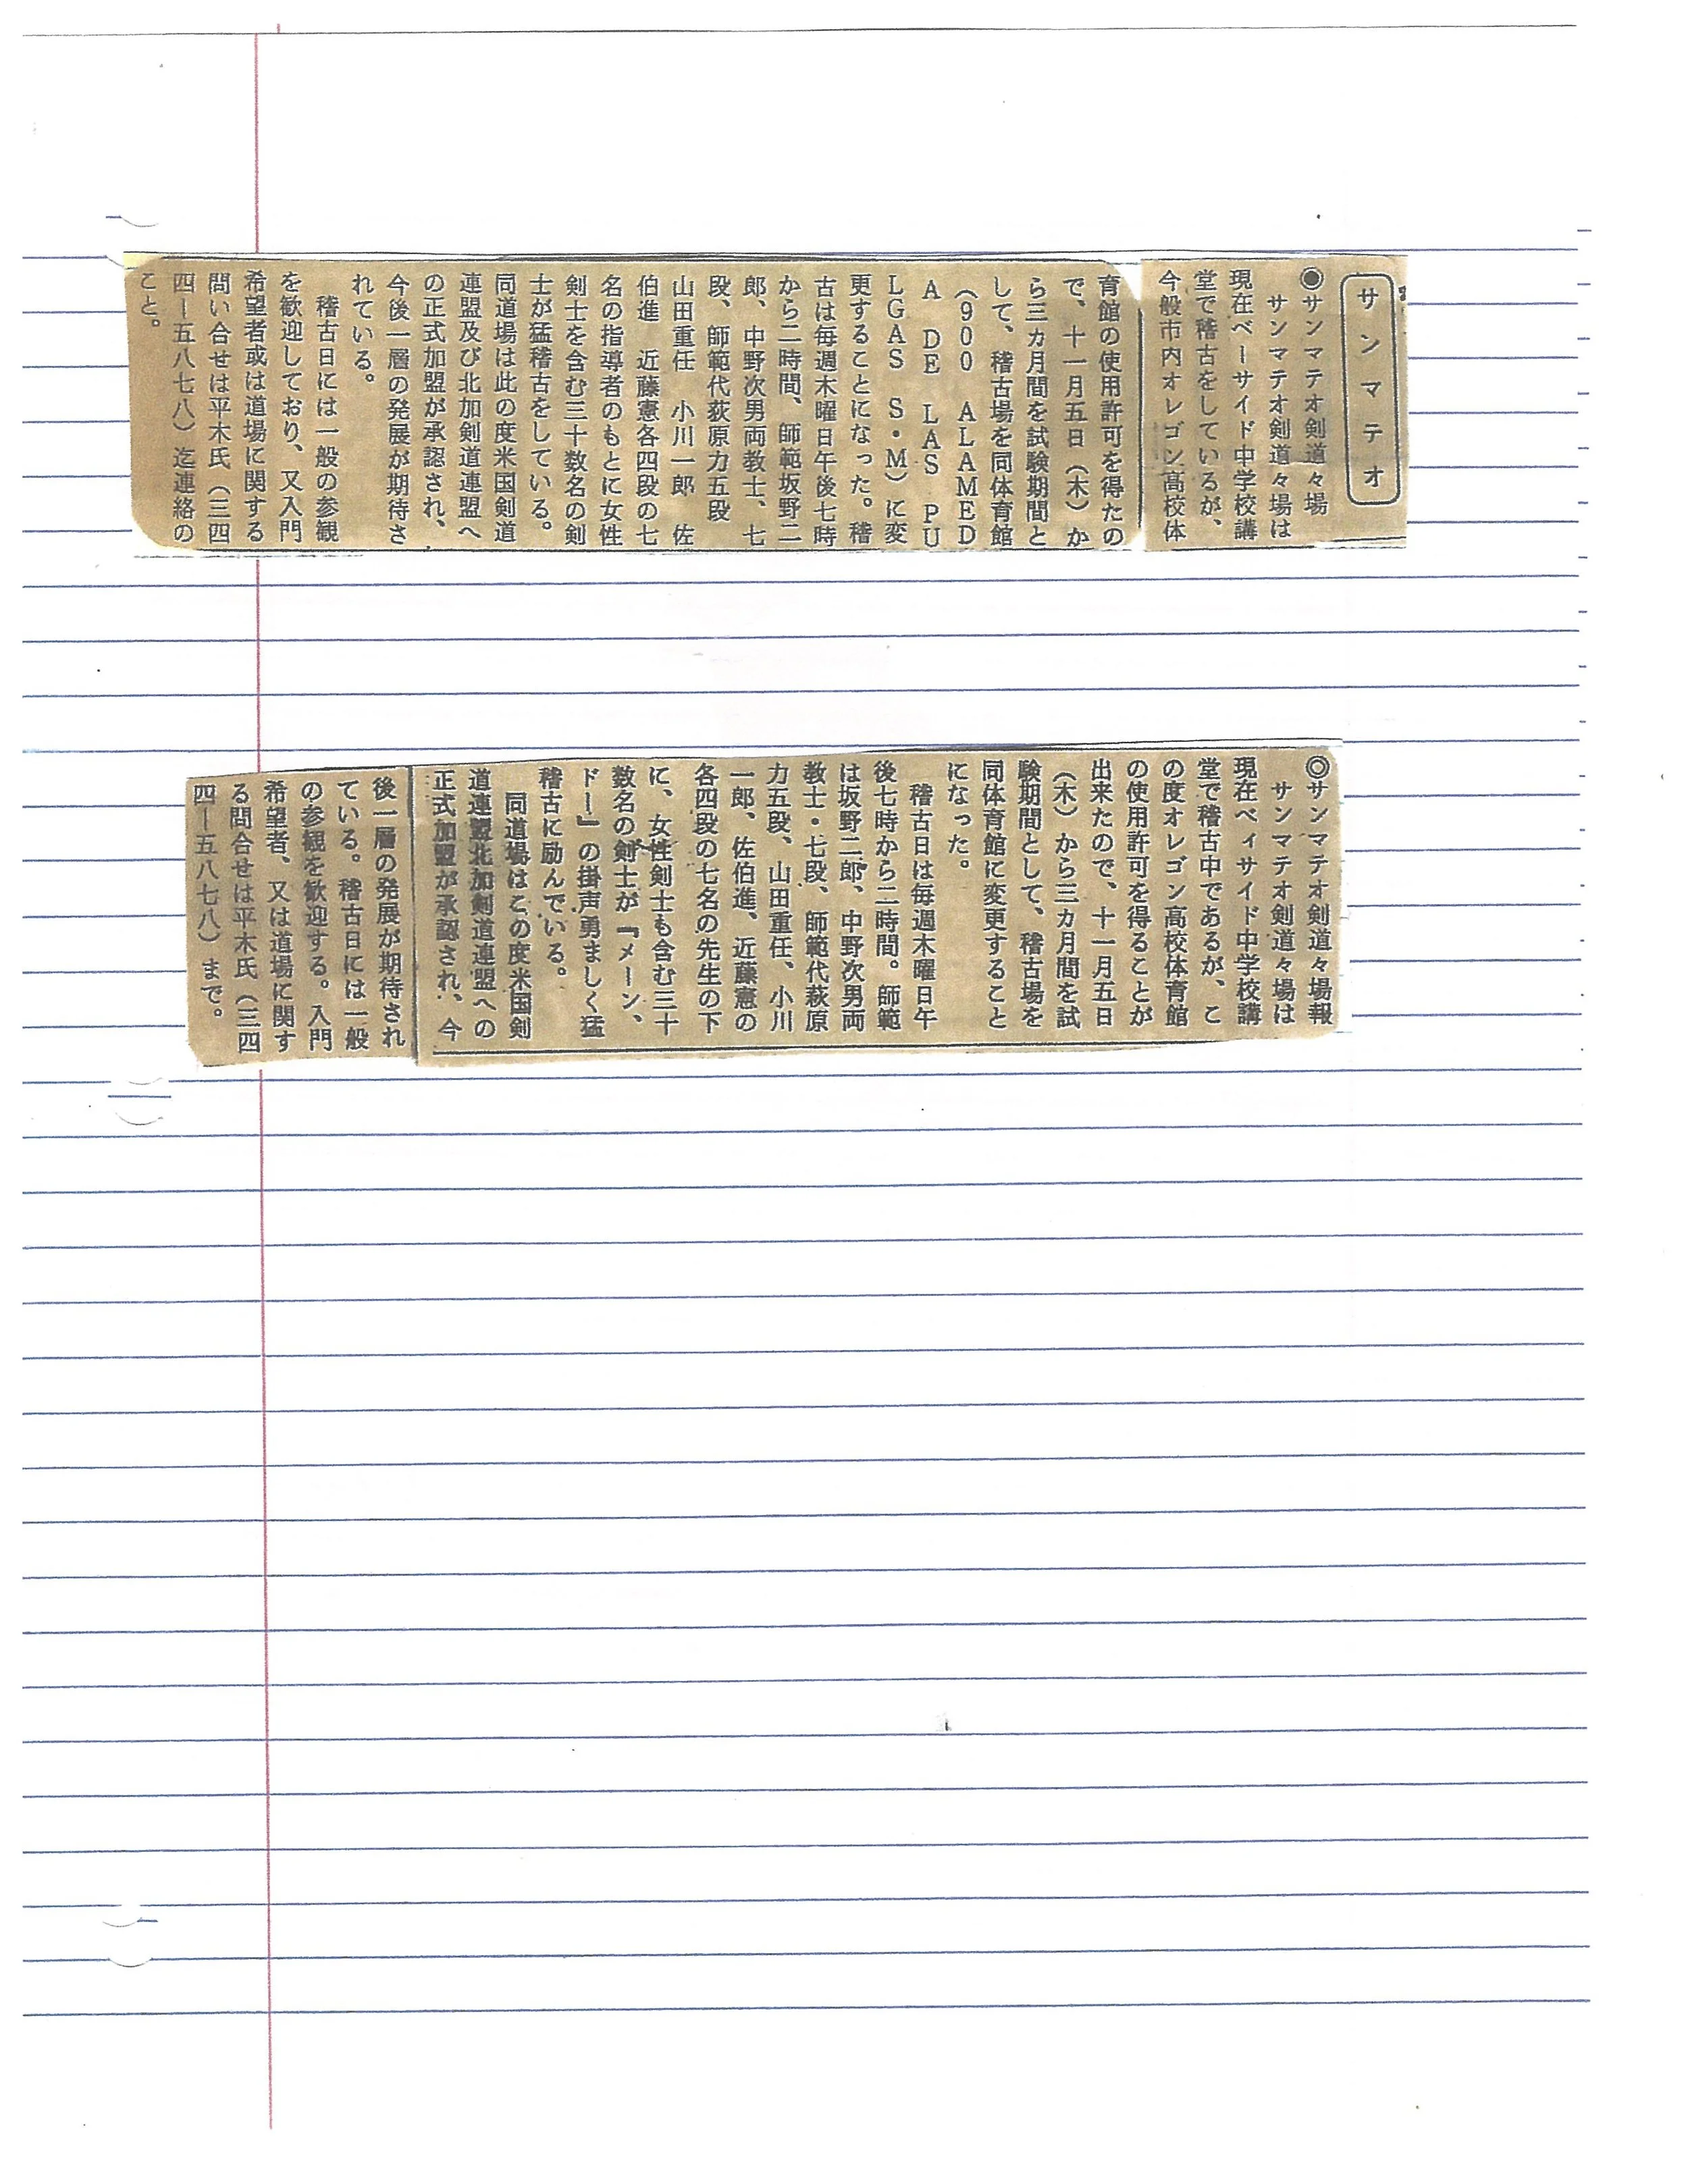 サンマテオ
◉サンマテオ剣道々場
サンマテオ剣道々場は
現在ベーサイド中学校講
堂で稽古をしているが、
今般市内オレゴン高校体
育館の使用許可を得たの
で、十一月五日（木）か
ら三カ月間を試験期間と
して、稽古場を同体育館
（900 ALAMED
A DE LAS PU
LGAS S・M）に変
更することになった。稽
古は毎週木曜日午後七時
から二時間、師範坂野二
郎、中野次男両教士、七
段、師範代荻原力五段
山田重任 小川一郎 佐
伯進 近藤憲各四段の七
名の指導者のもとに女性
剣士を含む三十数名の剣
士が猛稽古をしている。
同道場は此の度米国剣道
連盟及び北加剣道連盟へ
の正式加盟が承認され、
今後一層の発展が期待さ
れている。
稽古日には一般の参観
を歓迎しており、又入門
希望者或は道場に関する
問い合せは平木氏（三四
四ー五八七八）迄連絡の
こと。
◎サンマテオ剣道々場報
サンマテオ剣道々場は
現在ベィサイド中学校講
堂で稽古中であるが、こ
の度オレゴン高校体育館
の使用許可を得ることが
出来たので、十一月五日
（木）から三カ月間を試
験期間として、稽古場を
同体育館に変更すること
になった。
稽古日は毎週木曜日午
後七時から二時間。師範
は坂野二郎、中野次男両
教士・七段、師範代萩原
力五段、山田重任、小川
一郎、佐伯進、近藤憲の
各四段の七名の先生の下
に、女性剣士も含む三十
数名の剣士が『メーン、
ドー』の掛声勇ましく猛
稽古に励んでいる。
同道場はこの度米国剣
道連盟北加剣道連盟への
正式加盟が承認され、今
後一層の発展が期待され
ている。稽古日には一般
の参観を歓迎する。入門
希望者、又は道場に関す
る問合せは平木氏（三四
四ー五八七八）まで。